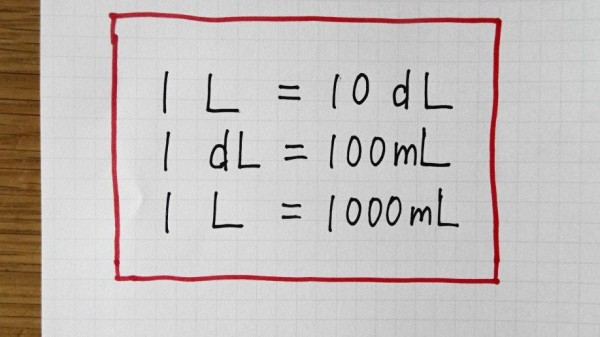 1 L = 10 dL
1 dL = 100mL
1 L = 1000mL